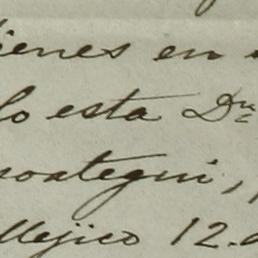 ienes en
lo esta Dn
oategui,
Méjico 12.